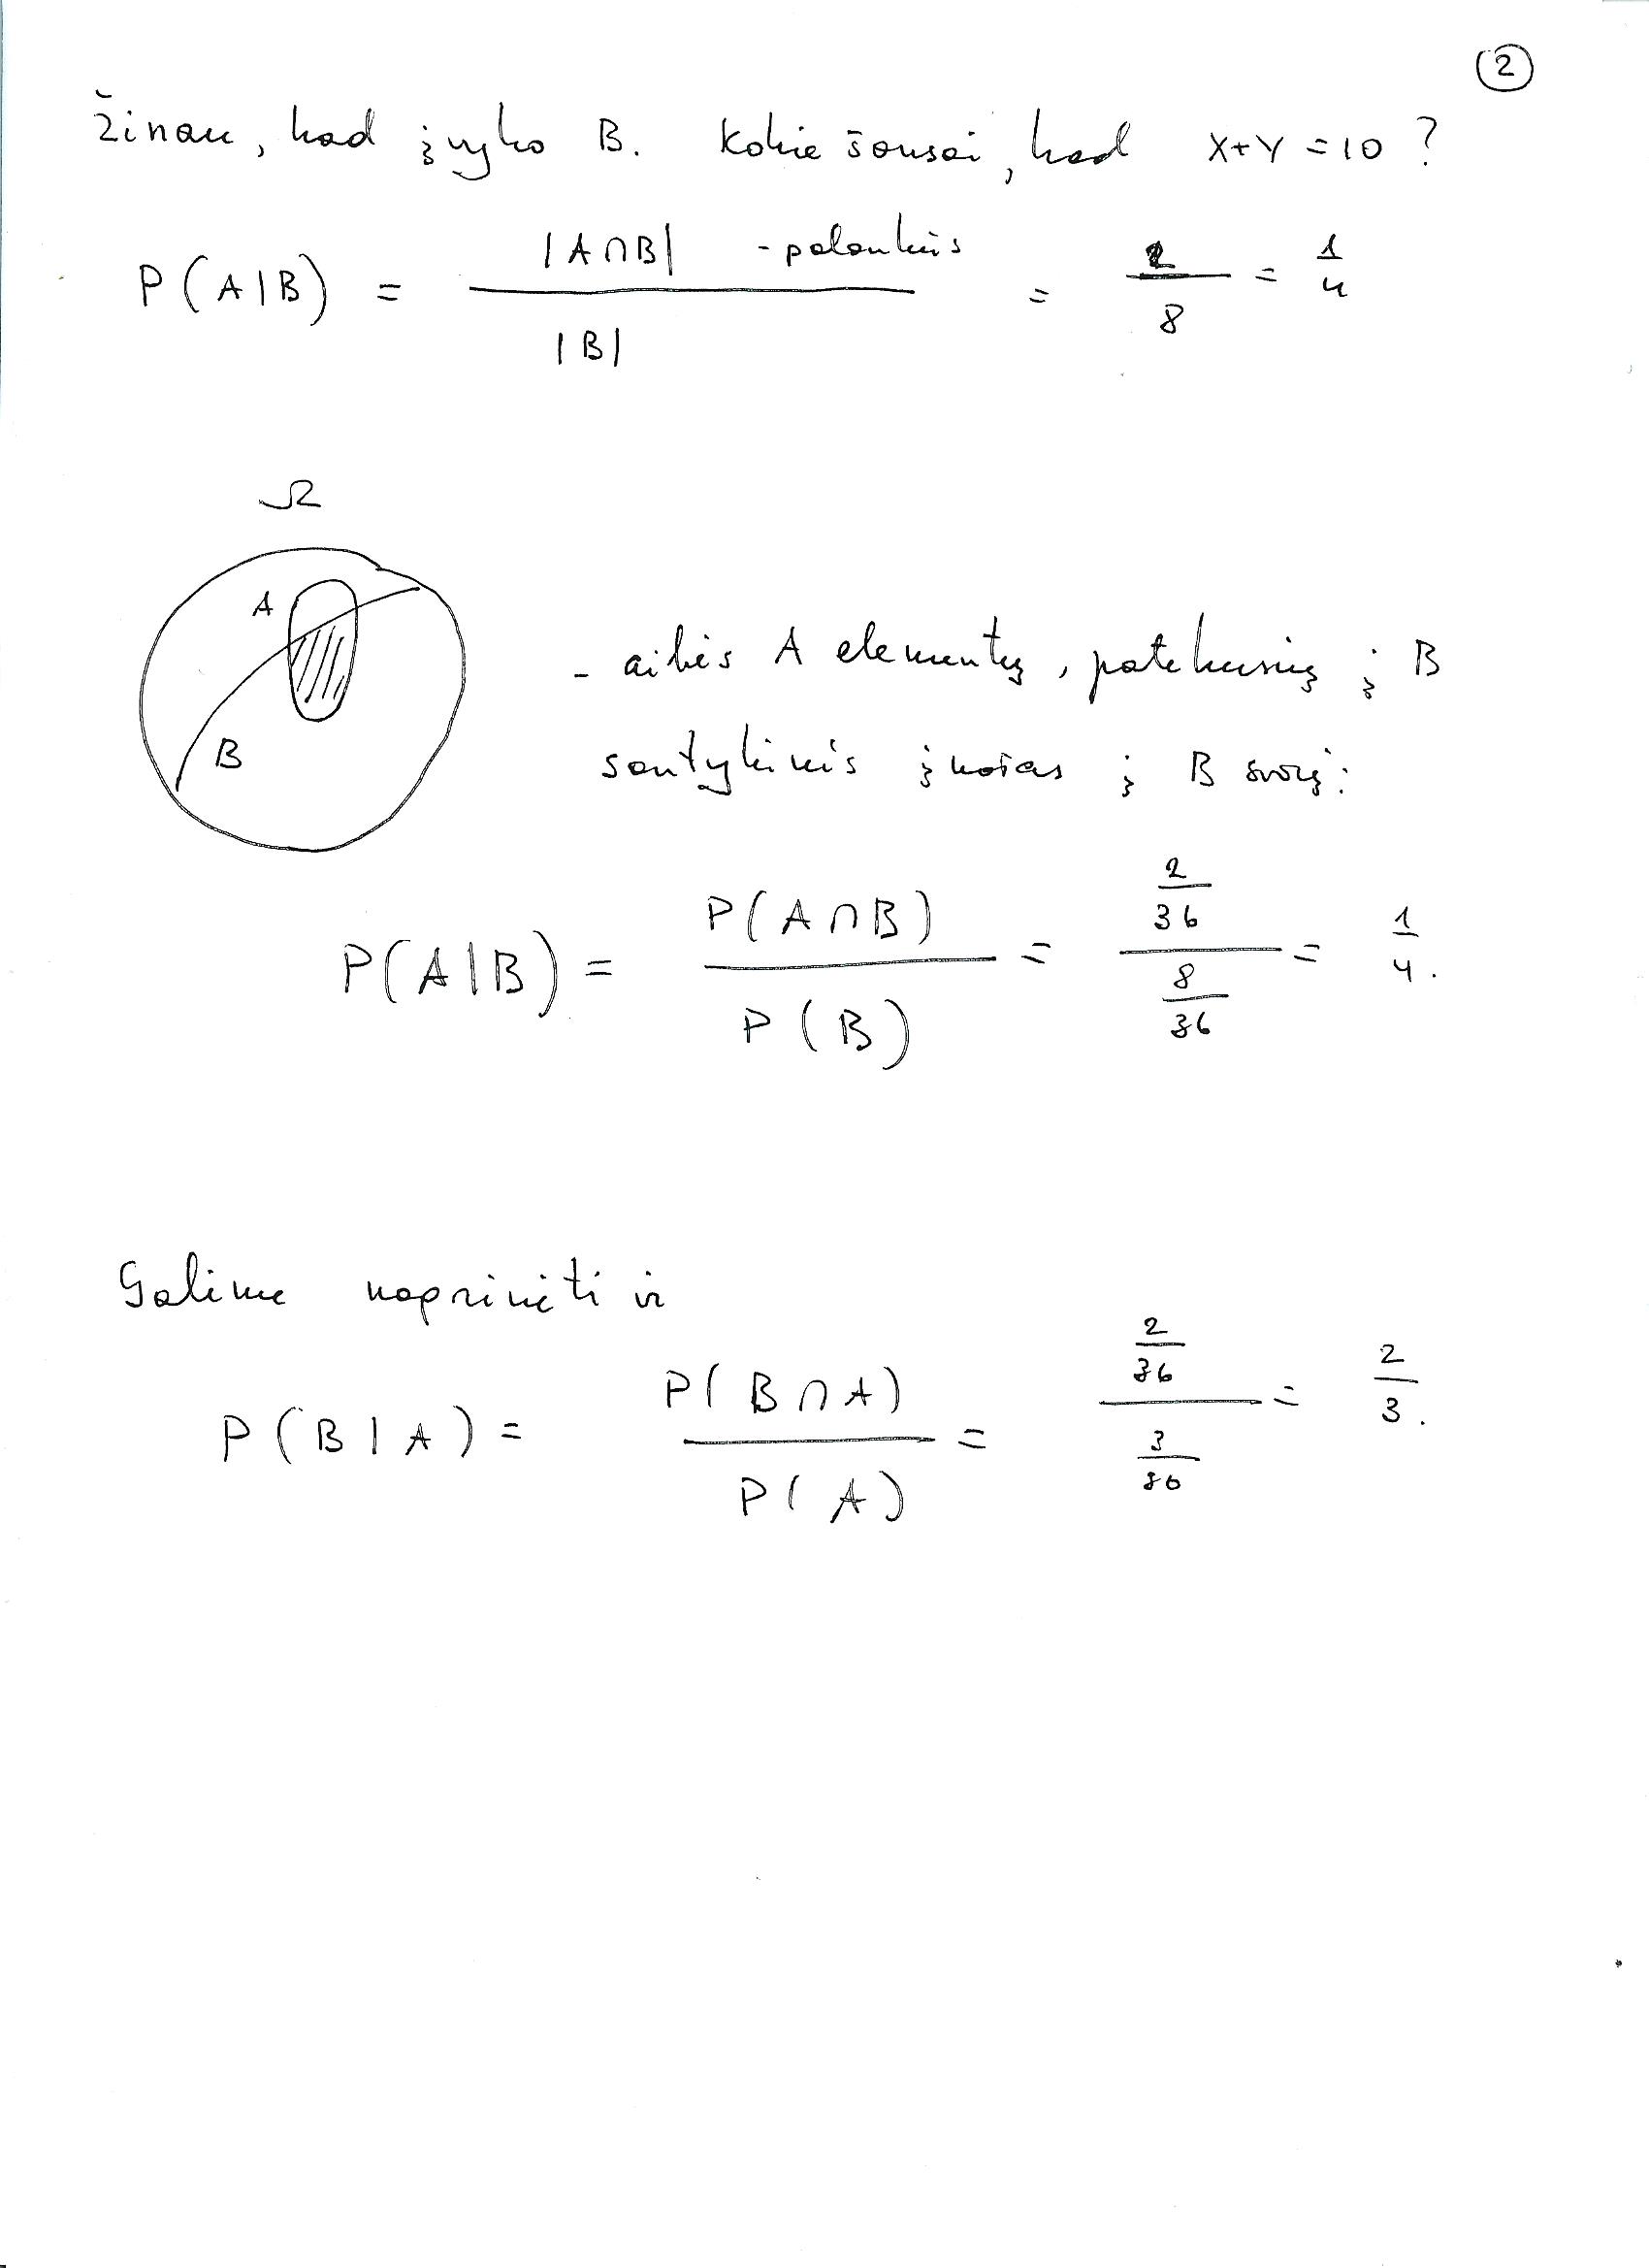 ②
Žinau, kad įvyko B. Kokie šansai, kad X+Y=10?
P(A|B) = |A∩B| - palankūs / |B| = 2/8 = 1/4
Ω
A
B
- aibės A elementų, patekusių į B
santykinis įnašas į B svorį:
P(A|B) = P(A∩B) / P(B) = (2/36) / (8/36) = 1/4.
Galime
P(B|A) = P(B∩A) / P(A) = (2/36) / (3/36) = 2/3.